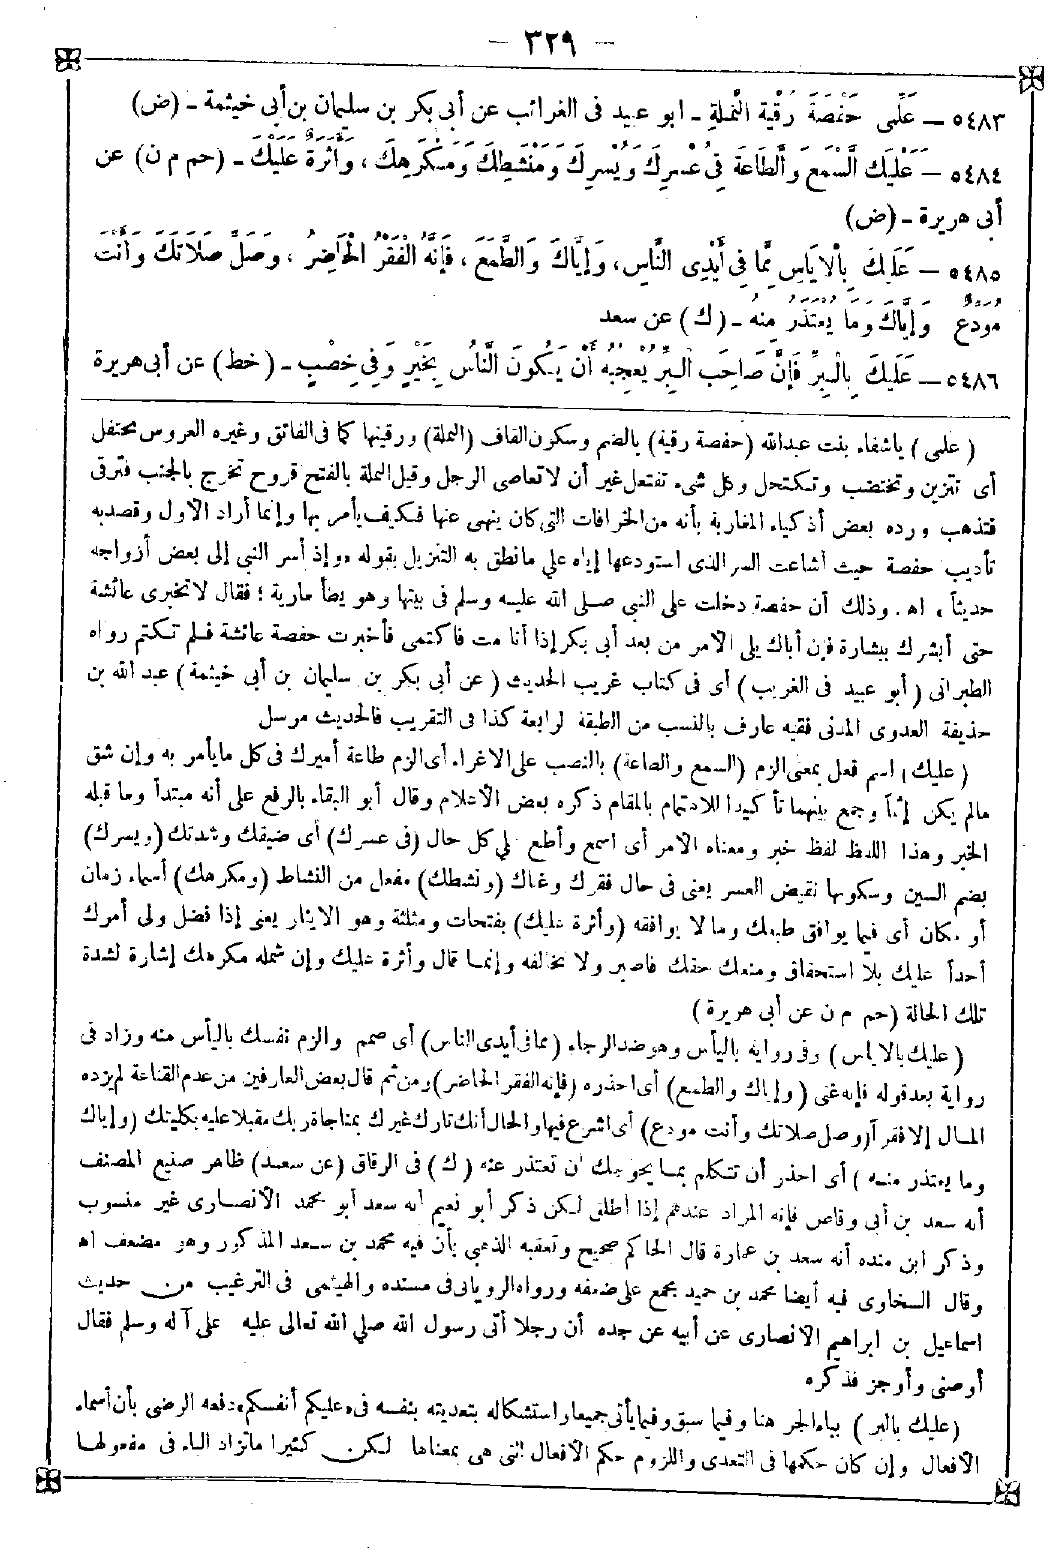 — ٣٢٩ —
٥٤٨٣ — عَلِّمِي حَفْصَةَ رُقْيَةَ النَّمْلَةِ - ابو عبيد فى الغرائب عن أبى بكر بن سليمان بن أبى خيثمة - (ض)
٥٤٨٤ — عَلَيْكَ السَّمْعَ وَالطَّاعَةَ فِي عُسْرِكَ وَيُسْرِكَ وَمَنْشَطِكَ وَمَكْرَهِكَ ، وَأَثَرَةً عَلَيْكَ - (حم م ن) عن
أبى هريرة - (ض)
٥٤٨٥ — عَلَيْكَ بِالْإِيَاسِ مِمَّا فِي أَيْدِي النَّاسِ، وَإِيَّاكَ وَالطَّمَعَ ، فَإِنَّهُ الْفَقْرُ الْحَاضِرُ ، وَصَلِّ صَلَاتَكَ وَأَنْتَ
مُوَدِّعٌ وَإِيَّاكَ وَمَا يُعْتَذَرُ مِنْهُ - (ك) عن سعد
٥٤٨٦ — عَلَيْكَ بِالْبِرِّ فَإِنَّ صَاحِبَ الْبِرِّ يُعْجِبُهُ أَنْ يَكُونَ النَّاسُ بِخَيْرٍ وَفِي خِصْبٍ - (خط) عن أبى هريرة
(علمى) ياشفاء بنت عبدالله (حفصة رقية) بالضم وسكون القاف (النملة) ورقيتها كما فى الفائق وغيره العروس تحتفل
أى تتزين وتختضب وتكتحل وكل شىء تفتعل غير أن لا تعاصى الرجل وقيل النملة بالفتح قروح تخرج بالجنب فترقى
فتذهب ورده بعض أذكياء المغاربة بأنه من الخرافات التى كان ينهى عنها فكيف يأمر بها وإنما أراد الأول وقصد به
تأديب حفصة حيث أشاعت السر الذى استودعها إياه على مانطق به التنزيل بقوله «وإذ أسر النبى إلى بعض أزواجه
حديثاً» اهـ. وذلك أن حفصة دخلت على النبى صلى الله عليه وسلم فى بيتها وهو يطأ مارية ؛ فقال لا تخبرى عائشة
حتى أبشرك ببشارة فإن أباك يلى الأمر من بعد أبى بكر إذا أنا مت فاكتمى فأخبرت حفصة عائشة فلم تكتم رواه
الطبرانى (أبو عبيد فى الغريب) أى فى كتاب غريب الحديث (عن أبى بكر بن سليمان بن أبى خيثمة) عبد الله بن
حذيفة العدوى المدنى فقيه عارف بالنسب من الطبقة الرابعة كذا فى التقريب فالحديث مرسل
(عليك) اسم فعل بمعنى الزم (السمع والطاعة) بالنصب على الاغراء أى الزم طاعة أميرك فى كل مايأمر به وإن شق
مالم يكن إثماً وجمع بينهما تأكيدا للاهتمام بالمقام ذكره بعض الأعلام وقال أبو البقاء بالرفع على أنه مبتدأ وما قبله
الخبر وهذا اللفظ لفظ خبر ومعناه الأمر أى اسمع وأطع على كل حال (فى عسرك) أى ضيقك وشدتك (ويسرك)
بضم السين وسكونها نقيض العسر يعنى فى حال فقرك وغناك (ومنشطك) مفعل من النشاط (ومكرهك) أسماء زمان
أو مكان أى فيما يوافق طبعك وما لا يوافقه (وأثرة عليك) بفتحات ومثلثة وهو الايثار يعنى إذا فضل ولى أمرك
أحداً عليك بلا استحقاق ومنعك حقك فاصبر ولا تخالفه وإنما قال وأثرة عليك وإن شمله مكرهك إشارة لشدة
تلك الحالة (حم م ن عن أبى هريرة)
(عليك بالاياس) وفى رواية باليأس وهو ضد الرجاء (مما فى أيدى الناس) أى صمم والزم نفسك باليأس منه وزاد فى
رواية بعد قوله فإنه غنى (وإياك والطمع) أى احذره (فإنه الفقر الحاضر) ومن ثم قال بعض العارفين من عدم القناعة لم يزده
المال إلا فقرآ (وصل صلاتك وأنت مودع) أى اشرع فيها والحال أنك تارك غيرك بمناجاة ربك مقبلا عليه بكليتك (وإياك
وما يعتذر منه) أى احذر أن تتكلم بما يحوجك أن تعتذر عنه (ك) فى الرقاق (عن سعد) ظاهر صنيع المصنف
أنه سعد بن أبى وقاص فإنه المراد عندهم إذا أطلق لكن ذكر أبو نعيم أنه سعد أبو محمد الأنصارى غير منسوب
وذكر ابن منده أنه سعد بن عمارة قال الحاكم صحيح وتعقبه الذهبى بأن فيه محمد بن سعد المذكور وهو مضعف اهـ
وقال السخاوى فيه أيضا محمد بن حميد مجمع على ضعفه ورواه الرويانى فى مسنده والهيثمى فى الترغيب من حديث
اسماعيل بن ابراهيم الانصارى عن أبيه عن جده أن رجلا أتى رسول الله صلى الله تعالى عليه على آله وسلم فقال
أوصنى وأوجز فذكره
(عليك بالبر) بباء الجر هنا وفيما سبق وفيما يأتى جميعا واستشكاله بتعديته بنفسه فى «عليكم أنفسكم» دفعه الرضى بأن أسماء
الأفعال وإن كان حكمها فى التعدى واللزوم حكم الأفعال التى هى بمعناها لكن كثيرا ماتزاد الباء فى مفعولها